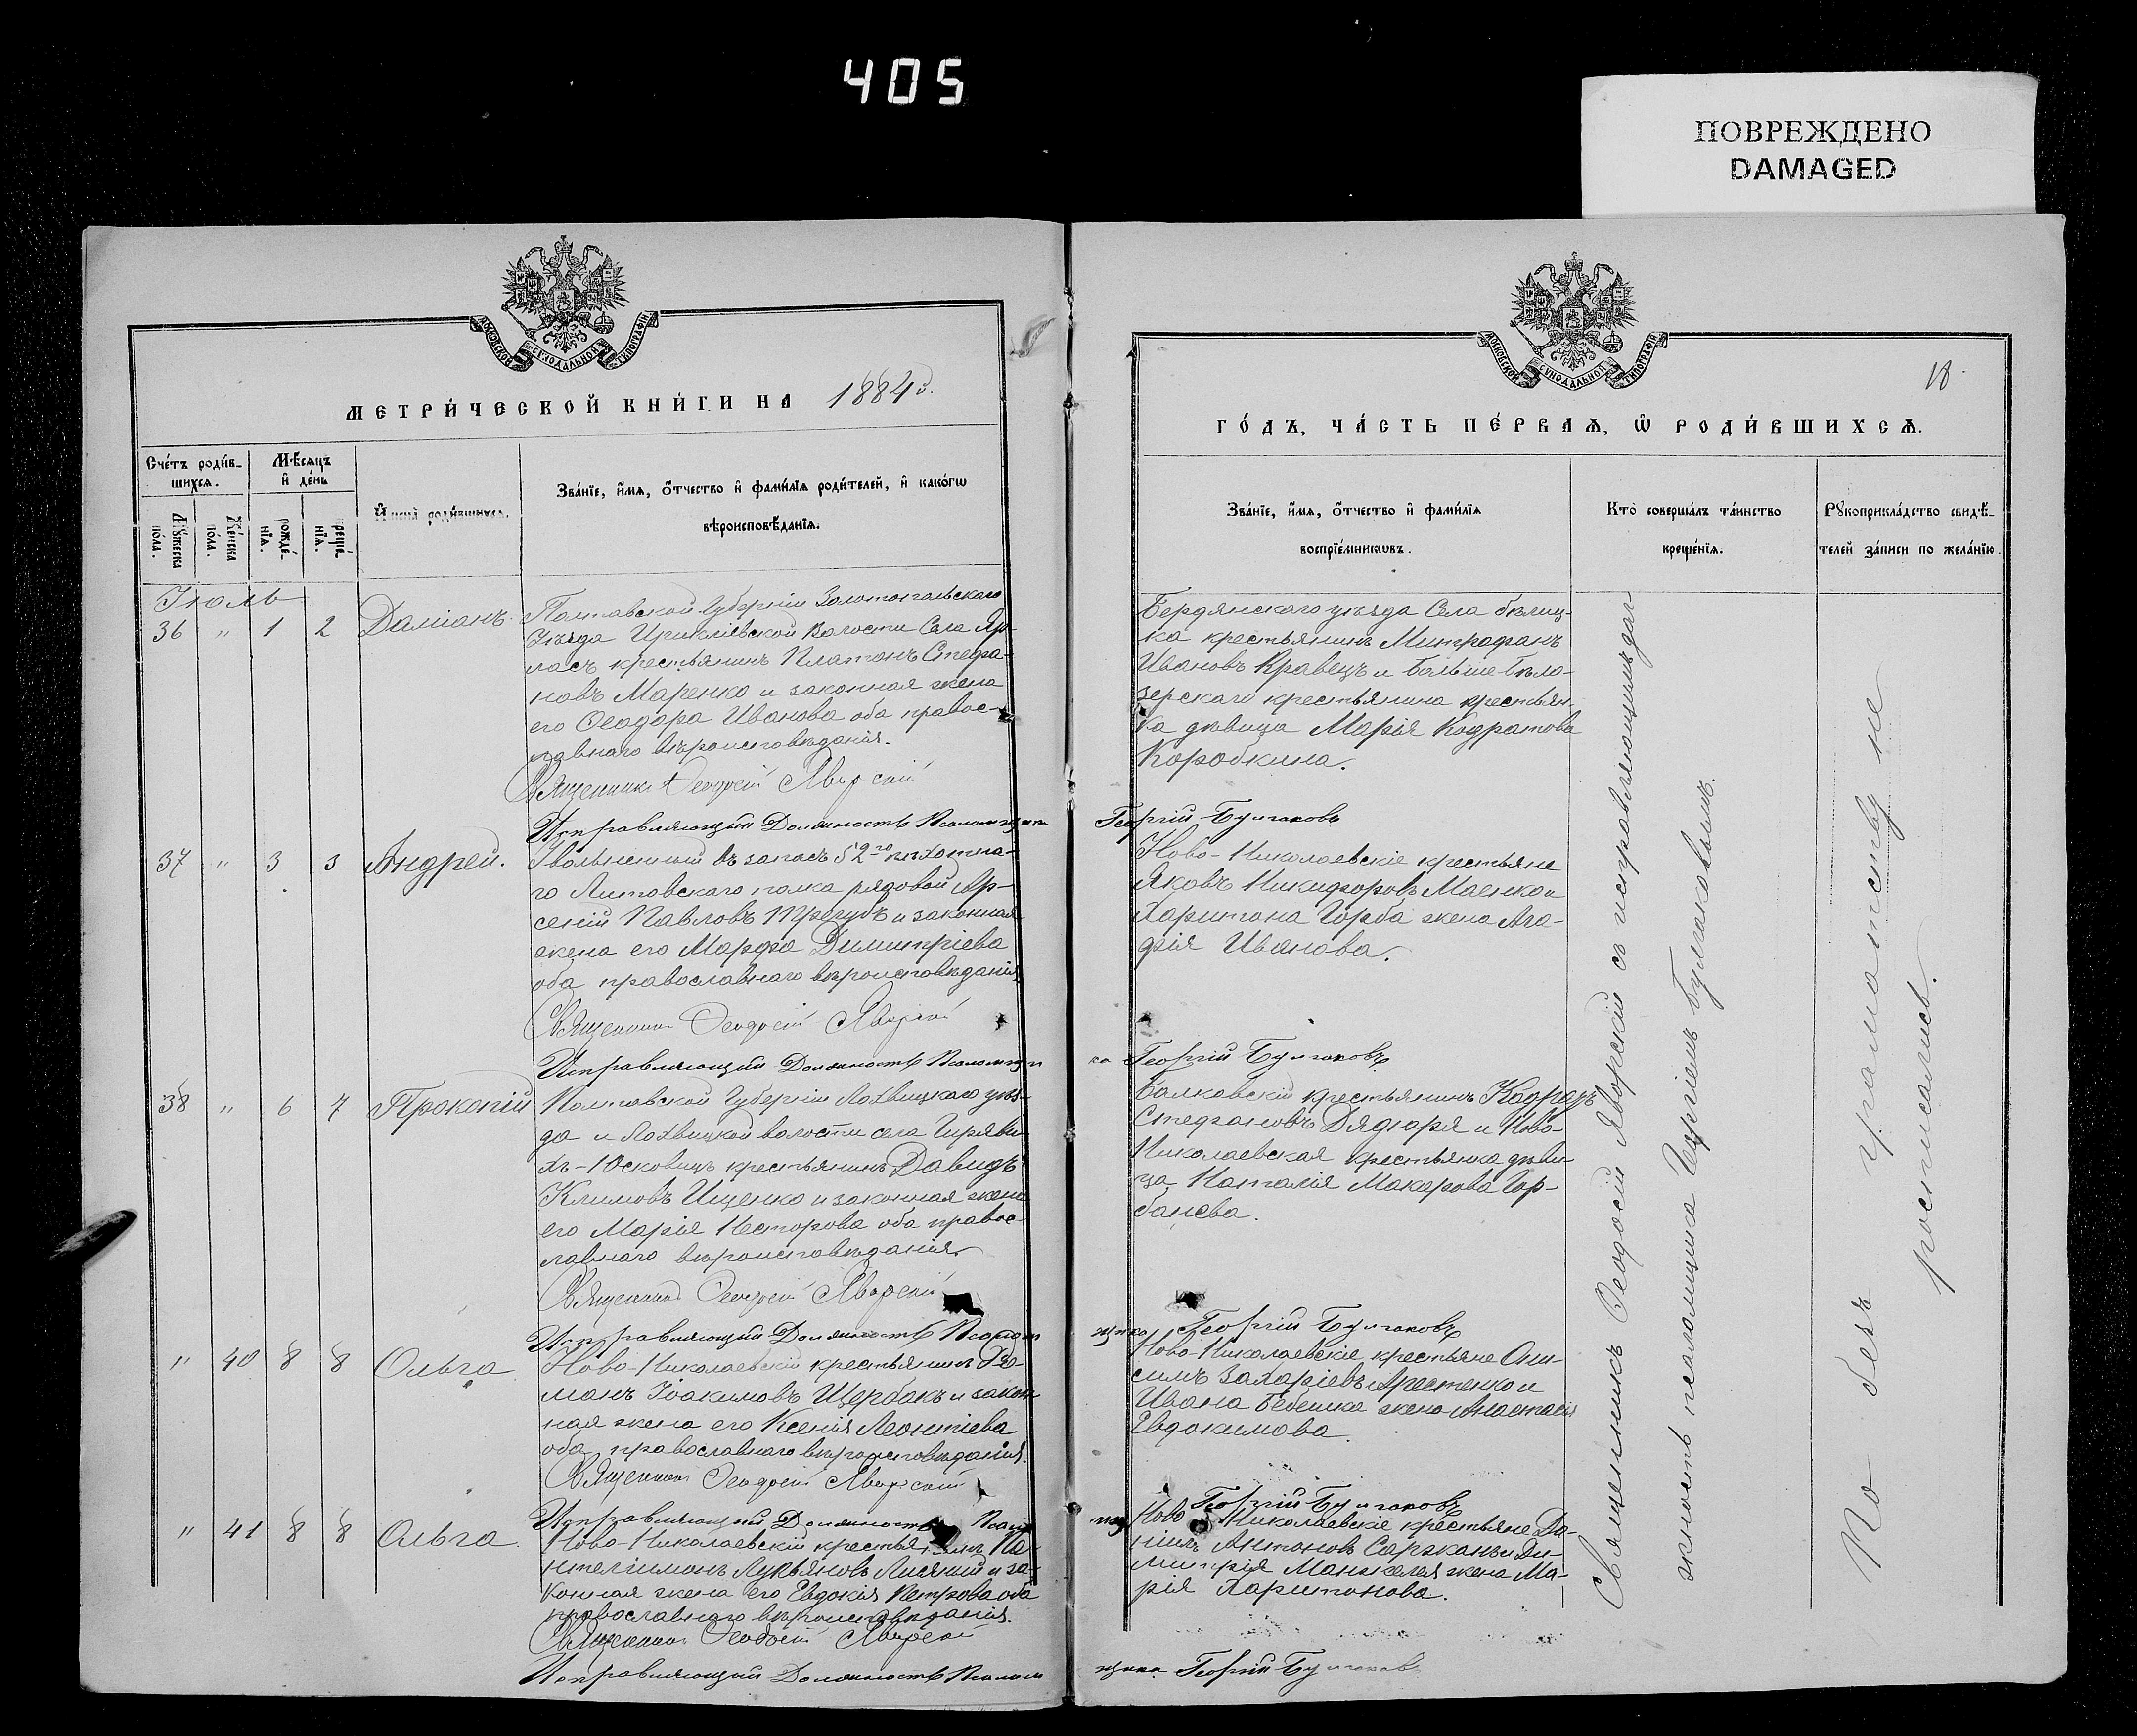 405
ПОВРЕЖДЕНО
DAMAGED
МОСКОВСКОЙ СѴНОДАЛЬНОЙ ТИПОГРАФІИ
МЕТРИ́ЧЕСКОЙ КНИ́ГИ НА 1884 г.
Сче́тъ роди́в-
шихся.
Мѣ́сяцъ
и҆ де́нь
Мꙋ́жеска
по́ла.
Же́нска
по́ла.
рожде́-
нїя.
креще́-
нїя.
И҆мена̀ роди́вшихся.
Зва́нїе, и҆́мя, ѻ҆́тчество и҆ фами́лїя роди́телей, и҆ како́гѡ
вѣроисповѣ́данїя.
Іюль
36 " 1 2 Даміанъ.
Полтавской Губерніи Золотоношьскаго
Уѣзда Ирклѣевской Волости Села
крестьянинъ Платонъ Стефа-
новъ Маренко и законная жена
его Ѳеодора Иванова оба правос-
лавнаго вѣроисповѣданія.
Священникъ Ѳеодосій Яворскій
Исправляющій Должность Псаломщика
37 " 3 3 Андрей.
Уволъненный въ запасъ 52го пѣхотна-
го Литовскаго полка рядовой Ар-
сеній Павловъ Трегубъ и законная
жена его Марфа Димитріева
оба православнаго вѣроисповѣданія
Священникъ Ѳеодосій Яворскій
Исправляющій Должность Псаломщи
38 " 6 7 Прокопій
Полтавской Губерніи Лохвицкаго уѣз-
да и Лохвицкой волости села Гиряви-
хъ-Юсковицъ крестьянинъ Давидъ
Климовъ Ищенко и законная жена
его Марія Несторова оба правос-
лавнаго вѣроисповѣданія
Священникъ Ѳеодосій Яворскій
Исправляющій Должность Псалом
" 40 8 8 Ольга.
Ново-Николаевскій крестьянинъ Ро-
манъ Іоакимовъ Щербакъ и закон-
ная жена его Ксенія Леонтіева
оба православнаго вѣроисповѣданія.
Священникъ Ѳеодосій Яворскій
Исправляющій Должность Псало
" 41 8 8 Ольга.
Ново-Николаевскій крестьянинъ Па-
нтелѣимонъ Лукьяновъ и за-
конная жена его Евдокія Петрова оба
православнаго вѣроисповѣданія.
Священникъ Ѳеодосій Яворскій
Исправляющій Должность Псалом
МОСКОВСКОЙ СѴНОДАЛЬНОЙ ТИПОГРАФІИ
18.
ГО́ДЪ, ЧА́СТЬ ПЕ́РВАЯ, Ѡ҆ РОДИ́ВШИХСЯ.
Зва́нїе, и҆́мя, ѻ҆́тчество и҆ фами́лїя
воспрїе́мникѡвъ.
Кто̀ соверша́лъ та́инство
креще́нїя.
Рꙋкоприкла́дство свидѣ́-
телей за́писи по жела́нїю.
Бердянскаго уѣзда Села бѣлиц-
ка крестьянинъ Митрофанъ
Ивановъ Кравецъ и больше-бѣло-
зерскаго крестьянина крестьян-
ка дѣвица Марія Кодратова
Коробкина.
Георгій Булгаковъ
Ново-Николаевскіе крестьяне
Яковъ Никифоровъ Маенко и
Харитона Горба жена Ага-
фія Иванова.
ка Георгій Булгаковъ
Балковскій крестьянинъ Кодратъ
Стефановъ Дядюря и Ново-
Николаевская крестьянка дѣви-
ца Наталія Макарова Гор-
банева.
щика Георгій Булгаковъ
Ново-Николаевскіе крестьяне Они-
симъ Захаріевъ Арестенко и
Ивана Бебешка жена Анастасія
Евдокимова.
Георгій Булгаковъ
Ново-Николаевскіе крестьяне Да-
ніилъ Антоновъ Саржанъ и Ди-
митрія Манжелея жена Ма-
рія Харитонова.
щика Георгій Булгаковъ
Священникъ Ѳеодосій Яворскій съ исправляющимъ дол-
жность псаломщика Георгіемъ Булгаковымъ.
По безъ грамотству не
росписались.